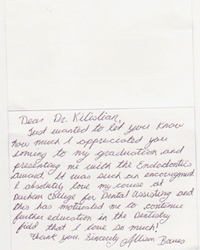 Dear Dr. Kilistian,
Just wanted to let you know
how much I appreciated you
coming to my graduation and
presenting me with the Endodontics
award. It was such an encouragment
I absolutely love my course at
Durham College for Dental Assisting and
this has motivated me to continue
further education in the Dentistry
field that I love so much!
Thank you. Sincerely Allison